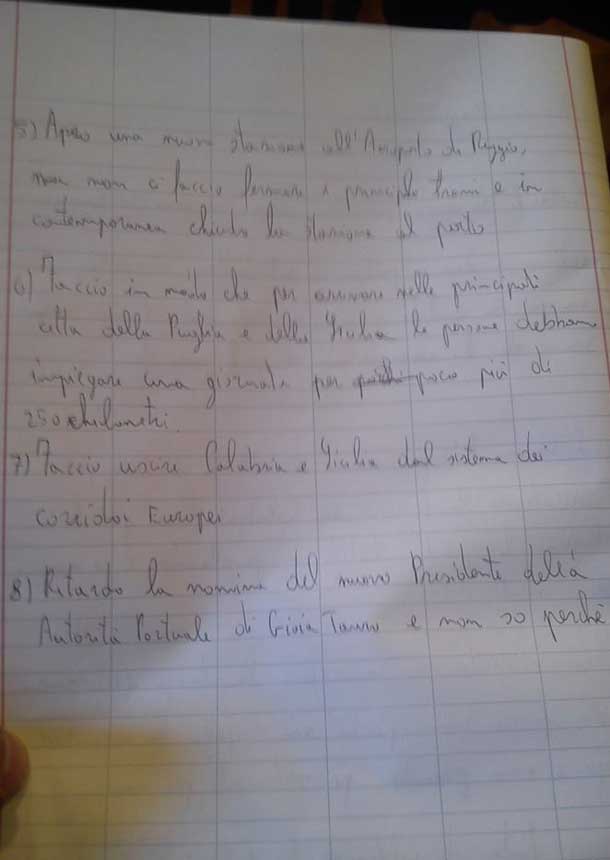 5) Apro una nuova stazione all'Aeroporto di Reggio,
ma non ci faccio fermare i principali treni e in
contemporanea chiudo la stazione al porto
6) Faccio in modo che per arrivare nelle principali
città della Puglia e della Sicilia le persone debbano
impiegare una giornata per poco più di
250 chilometri.
7) Faccio uscire Calabria e Sicilia dal sistema dei
corridoi Europei
8) Ritardo la nomina del nuovo Presidente della
Autorità Portuale di Gioia Tauro e non so perché